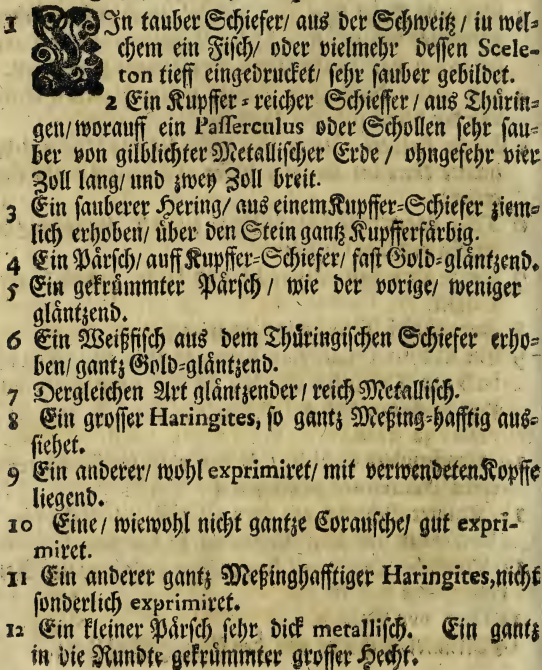 1 EIn tauber Schiefer/ aus der Schweitz/ in wel=
chem ein Fisch/ oder vielmehr dessen Scele-
ton tieff eingedrucket/ sehr sauber gebildet.
2 Ein Kupffer = reicher Schieffer / aus Thürin=
gen/ worauff ein Passerculus oder Schollen sehr sau=
ber von gilblichter Metallischer Erde / ohngefehr vier
Zoll lang/ und zwey Zoll breit.
3 Ein sauberer Hering/ aus einem Kupffer=Schiefer ziem=
lich erhoben/ über den Stein gantz Kupfferfärbig.
4 Ein Pärsch/ auff Kupffer=Schiefer/ fast Gold=gläntzend.
5 Ein gekrümmter Pärsch / wie der vorige/ weniger
gläntzend.
6 Ein Weißfisch aus dem Thüringischen Schiefer erho=
ben/ gantz Gold=gläntzend.
7 Dergleichen Art gläntzender / reich Metallisch.
8 Ein grosser Haringites, so gantz Meßing=hafftig aus=
siehet.
9 Ein anderer/ wohl exprimiret/ mit verwendeten Kopffe
liegend.
10 Eine / wiewohl nicht gantze Corausche/ gut expri-
miret.
11 Ein anderer gantz Meßinghafftiger Haringites, nicht
sonderlich exprimiret.
12 Ein kleiner Pärsch sehr dick metallisch. Ein gantz
in die Rundte gekrümmter grosser Hecht.